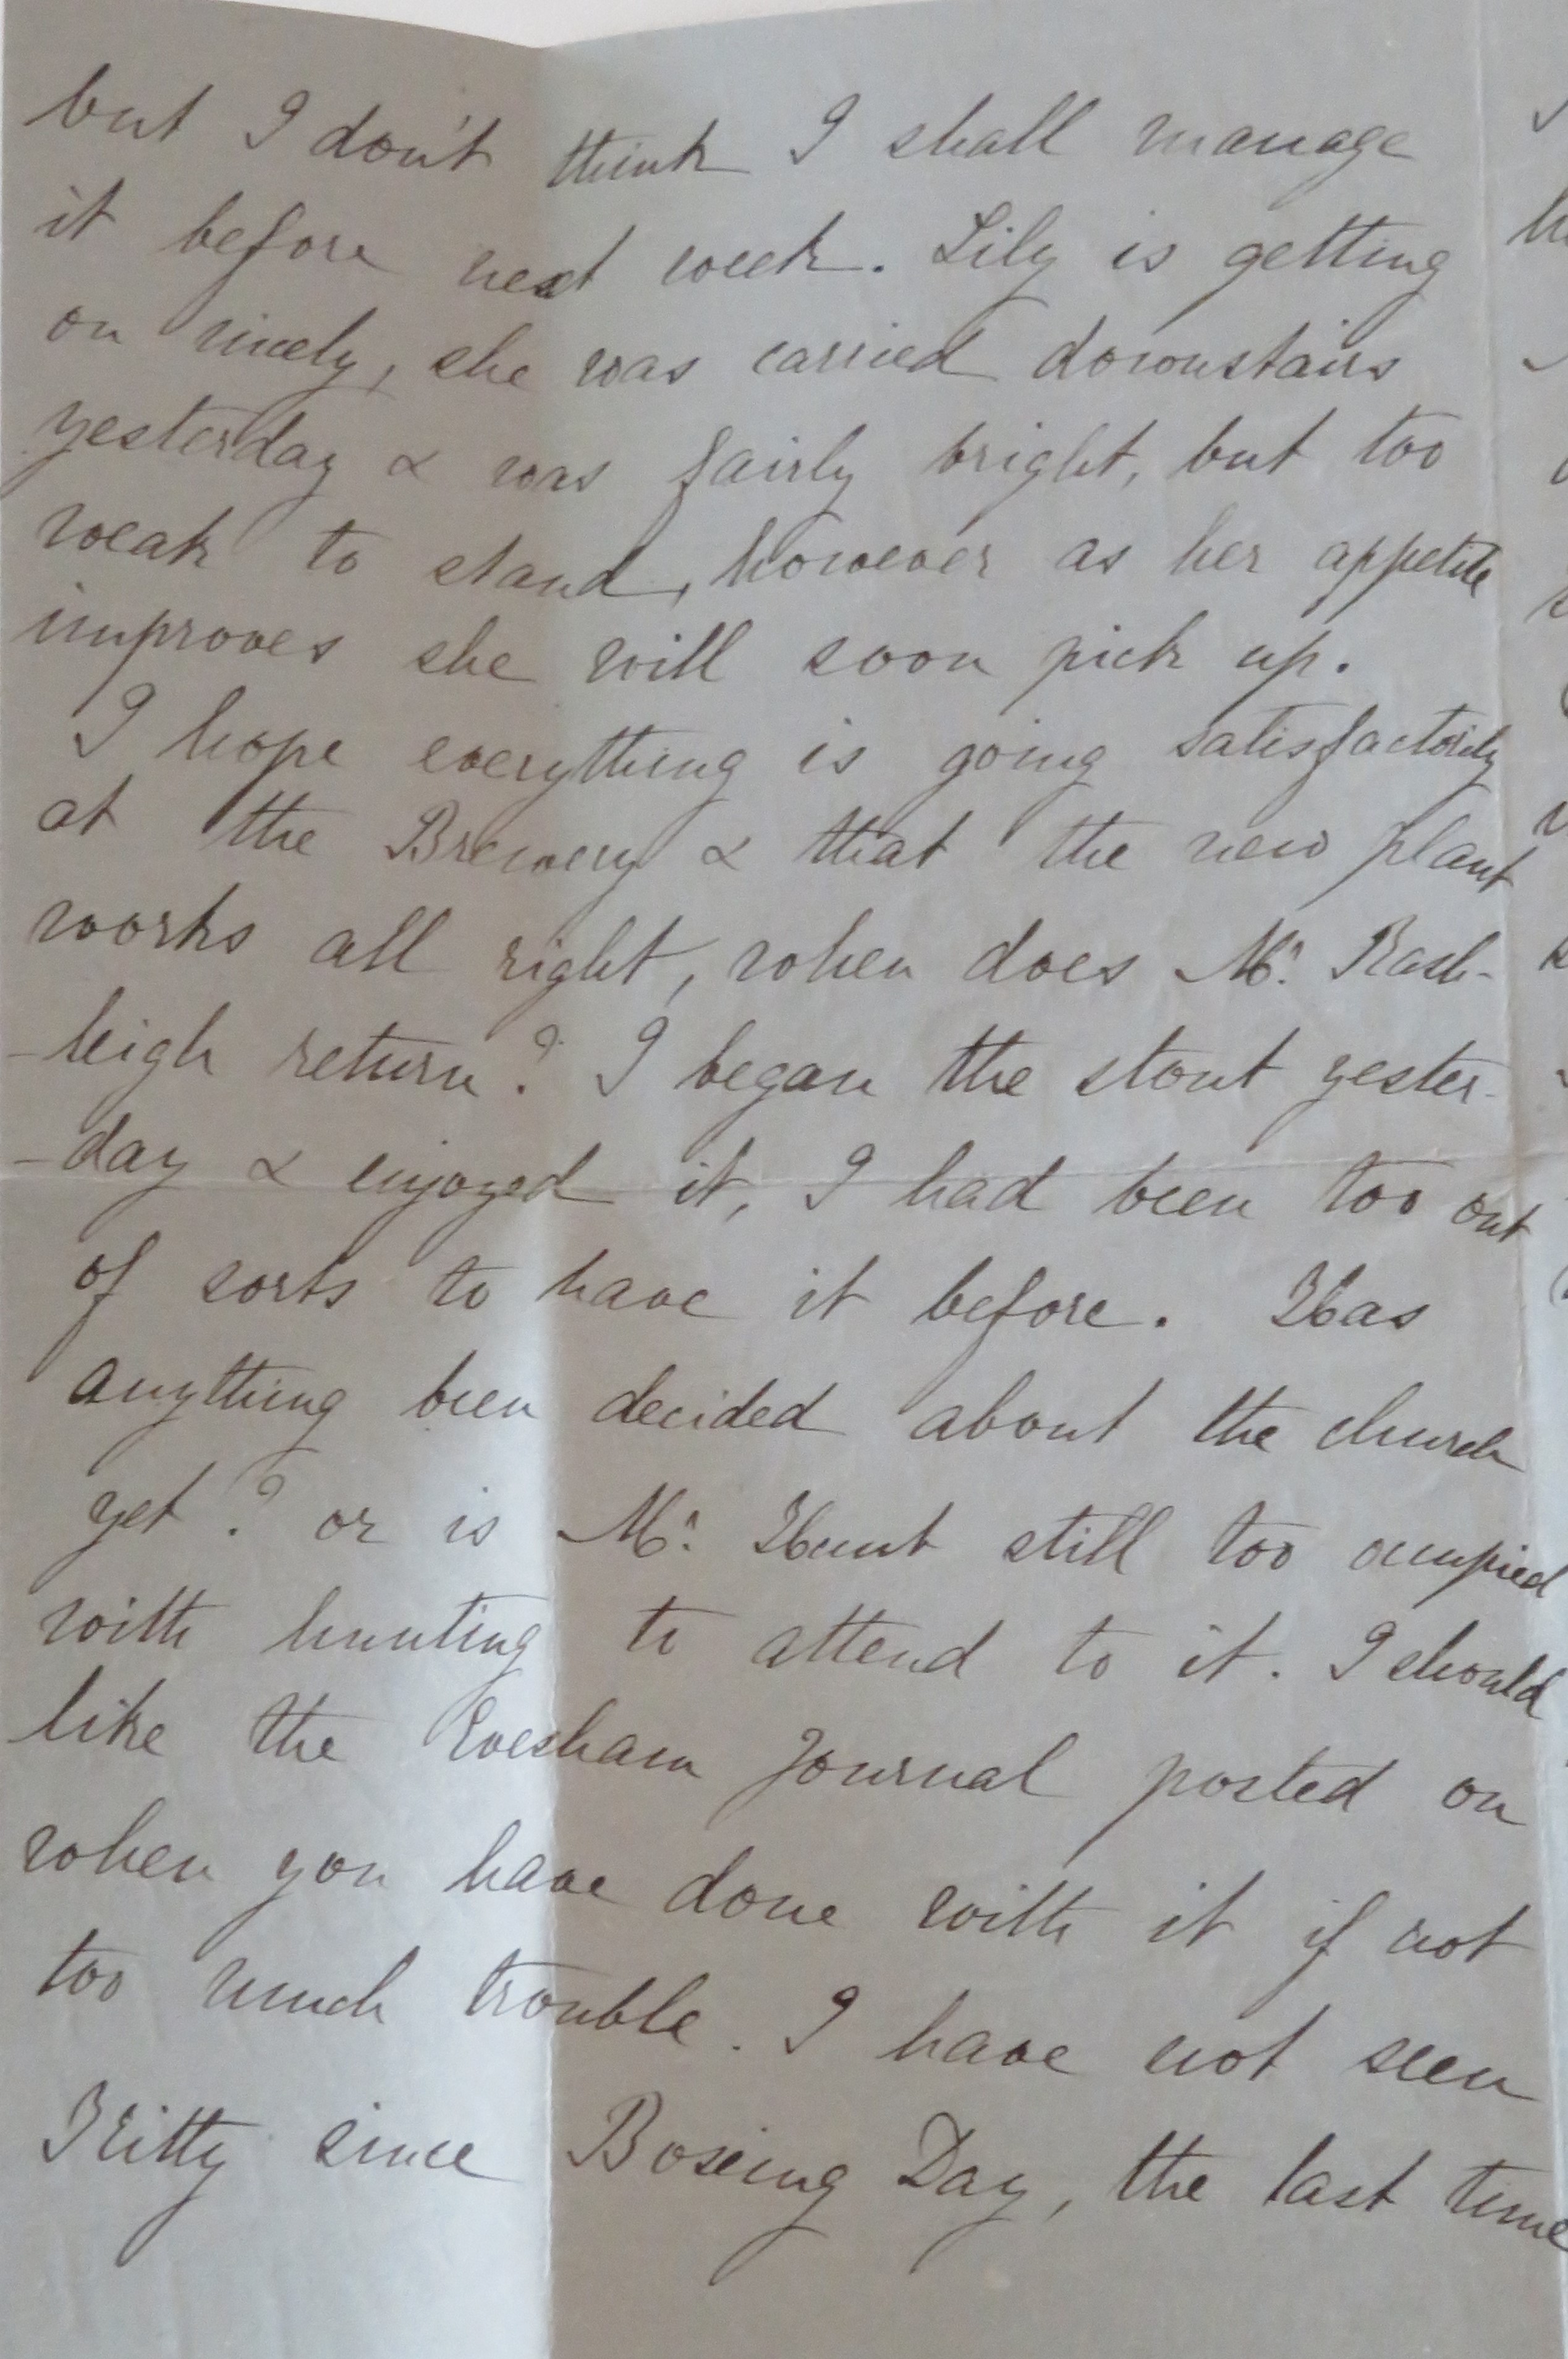 but I don't think I shall manage
it before next week. Lily is getting
on nicely, she was carried downstairs
yesterday & was fairly bright, but too
weak to stand, however as her appetite
improves she will soon pick up.
I hope everything is going satisfactorily
at the Brewery & that the new plant
works all right, when does Mr. Rash-
-leigh return? I began the stout yester-
-day & enjoyed it, I had been too out
of sorts to have it before. Has
anything been decided about the church
yet? or is Mr. Hunt still too occupied
with hunting to attend to it. I should
like the Evesham Journal posted on
when you have done with it if not
too much trouble. I have not seen
Kitty since Boxing Day, the last time